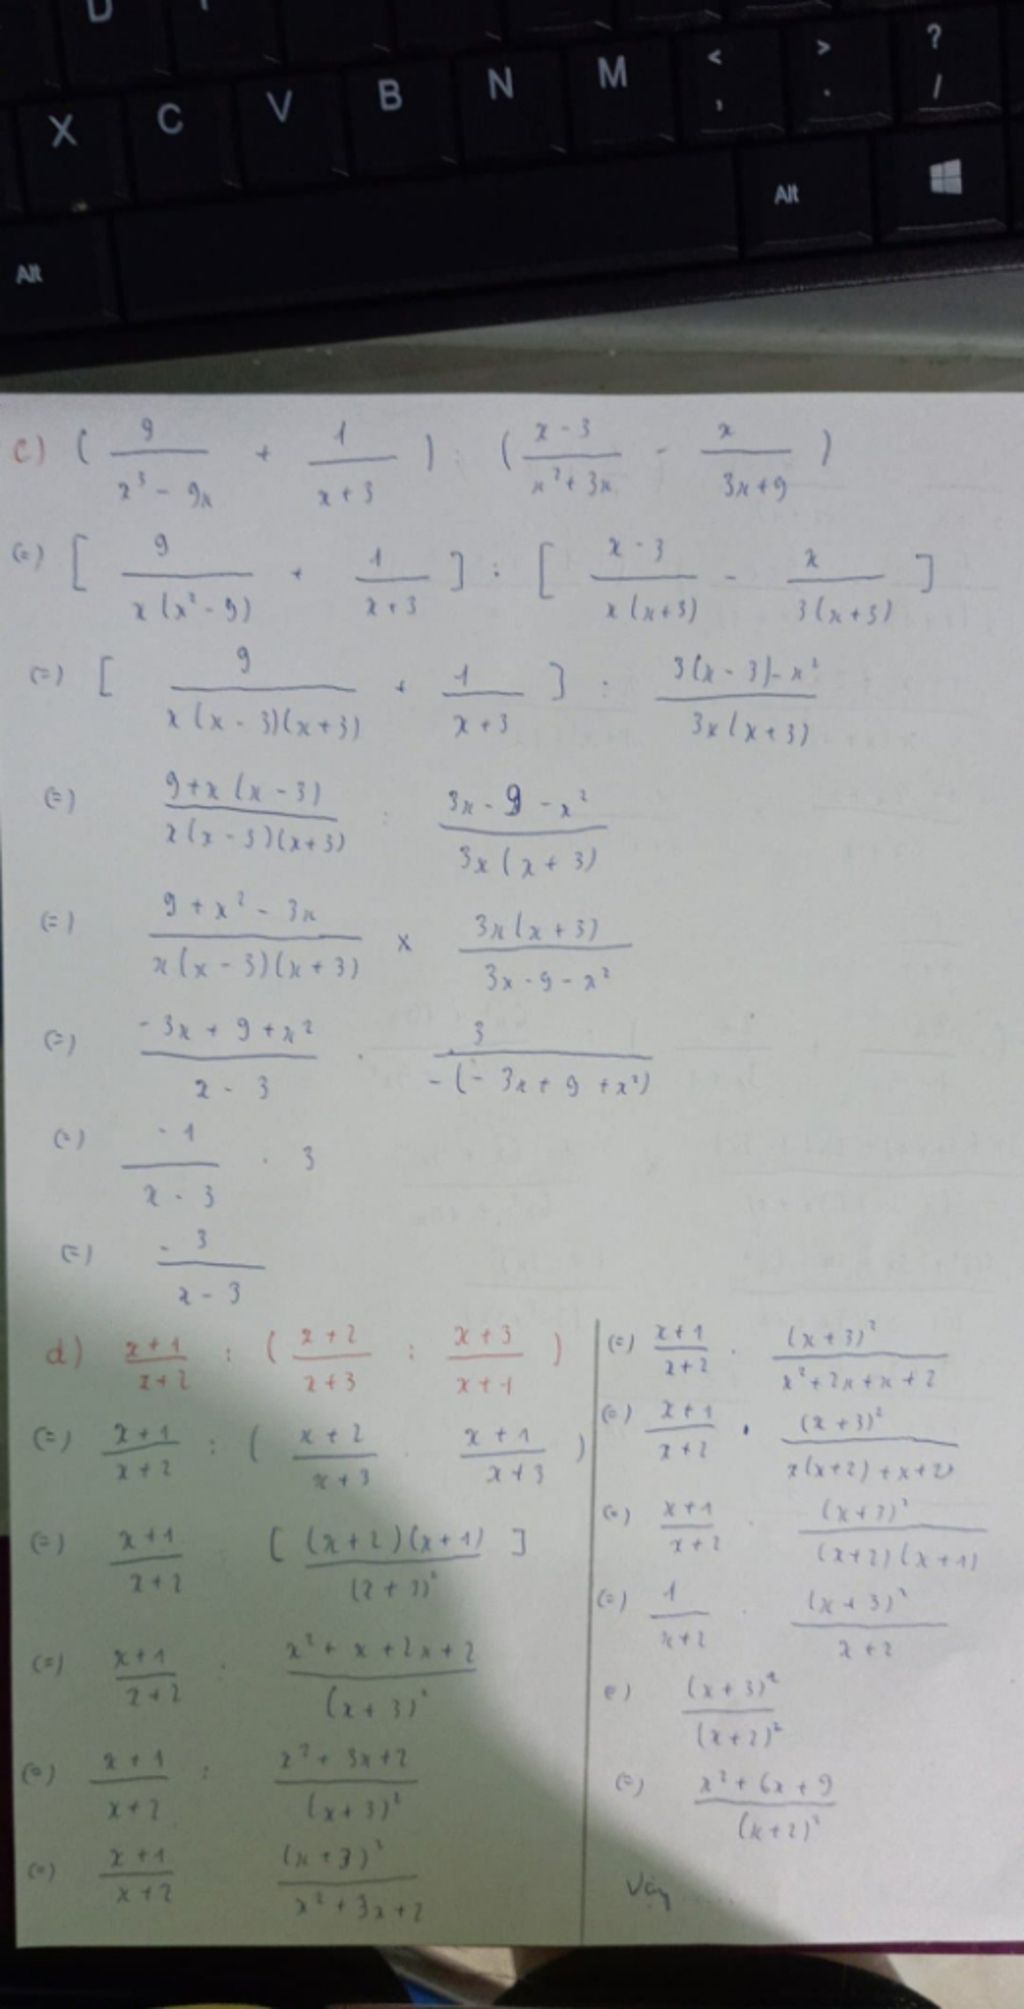 D
X C V B N M < , > . ? /
Alt
Alt
c) ( 9/(x³ - 9x) + 1/(x+3) ) : ( (x-3)/(x²+3x) - x/(3x+9) )
(=) [ 9/(x(x²-9)) + 1/(x+3) ] : [ (x-3)/(x(x+3)) - x/(3(x+3)) ]
(=) [ 9/(x(x-3)(x+3)) + 1/(x+3) ] : (3(x-3)-x²)/(3x(x+3))
(=) (9+x(x-3))/(x(x-3)(x+3)) : (3x-9-x²)/(3x(x+3))
(=) (9+x²-3x)/(x(x-3)(x+3)) x (3x(x+3))/(3x-9-x²)
(=) (-3x+9+x²)/(x-3) . 3/(-(-3x+9+x²))
(=) -1/(x-3) . 3
(=) -3/(x-3)
d) (x+1)/(x+2) : ( (x+2)/(x+3) : (x+3)/(x+1) )
(=) (x+1)/(x+2) : ( (x+2)/(x+3) . (x+1)/(x+3) )
(=) (x+1)/(x+2) : [ ((x+2)(x+1))/(x+3)² ]
(=) (x+1)/(x+2) : (x²+x+2x+2)/(x+3)²
(=) (x+1)/(x+2) : (x²+3x+2)/(x+3)²
(=) (x+1)/(x+2) (x+3)²/(x²+3x+2)
(=) (x+1)/(x+2) . (x+3)²/(x²+2x+x+2)
(=) (x+1)/(x+2) . (x+3)²/(x(x+2)+x+2)
(=) (x+1)/(x+2) . (x+3)²/((x+2)(x+1))
(=) 1/(x+2) . (x+3)²/(x+2)
(=) (x+3)²/(x+2)²
(=) (x²+6x+9)/(x+2)²
Vậy